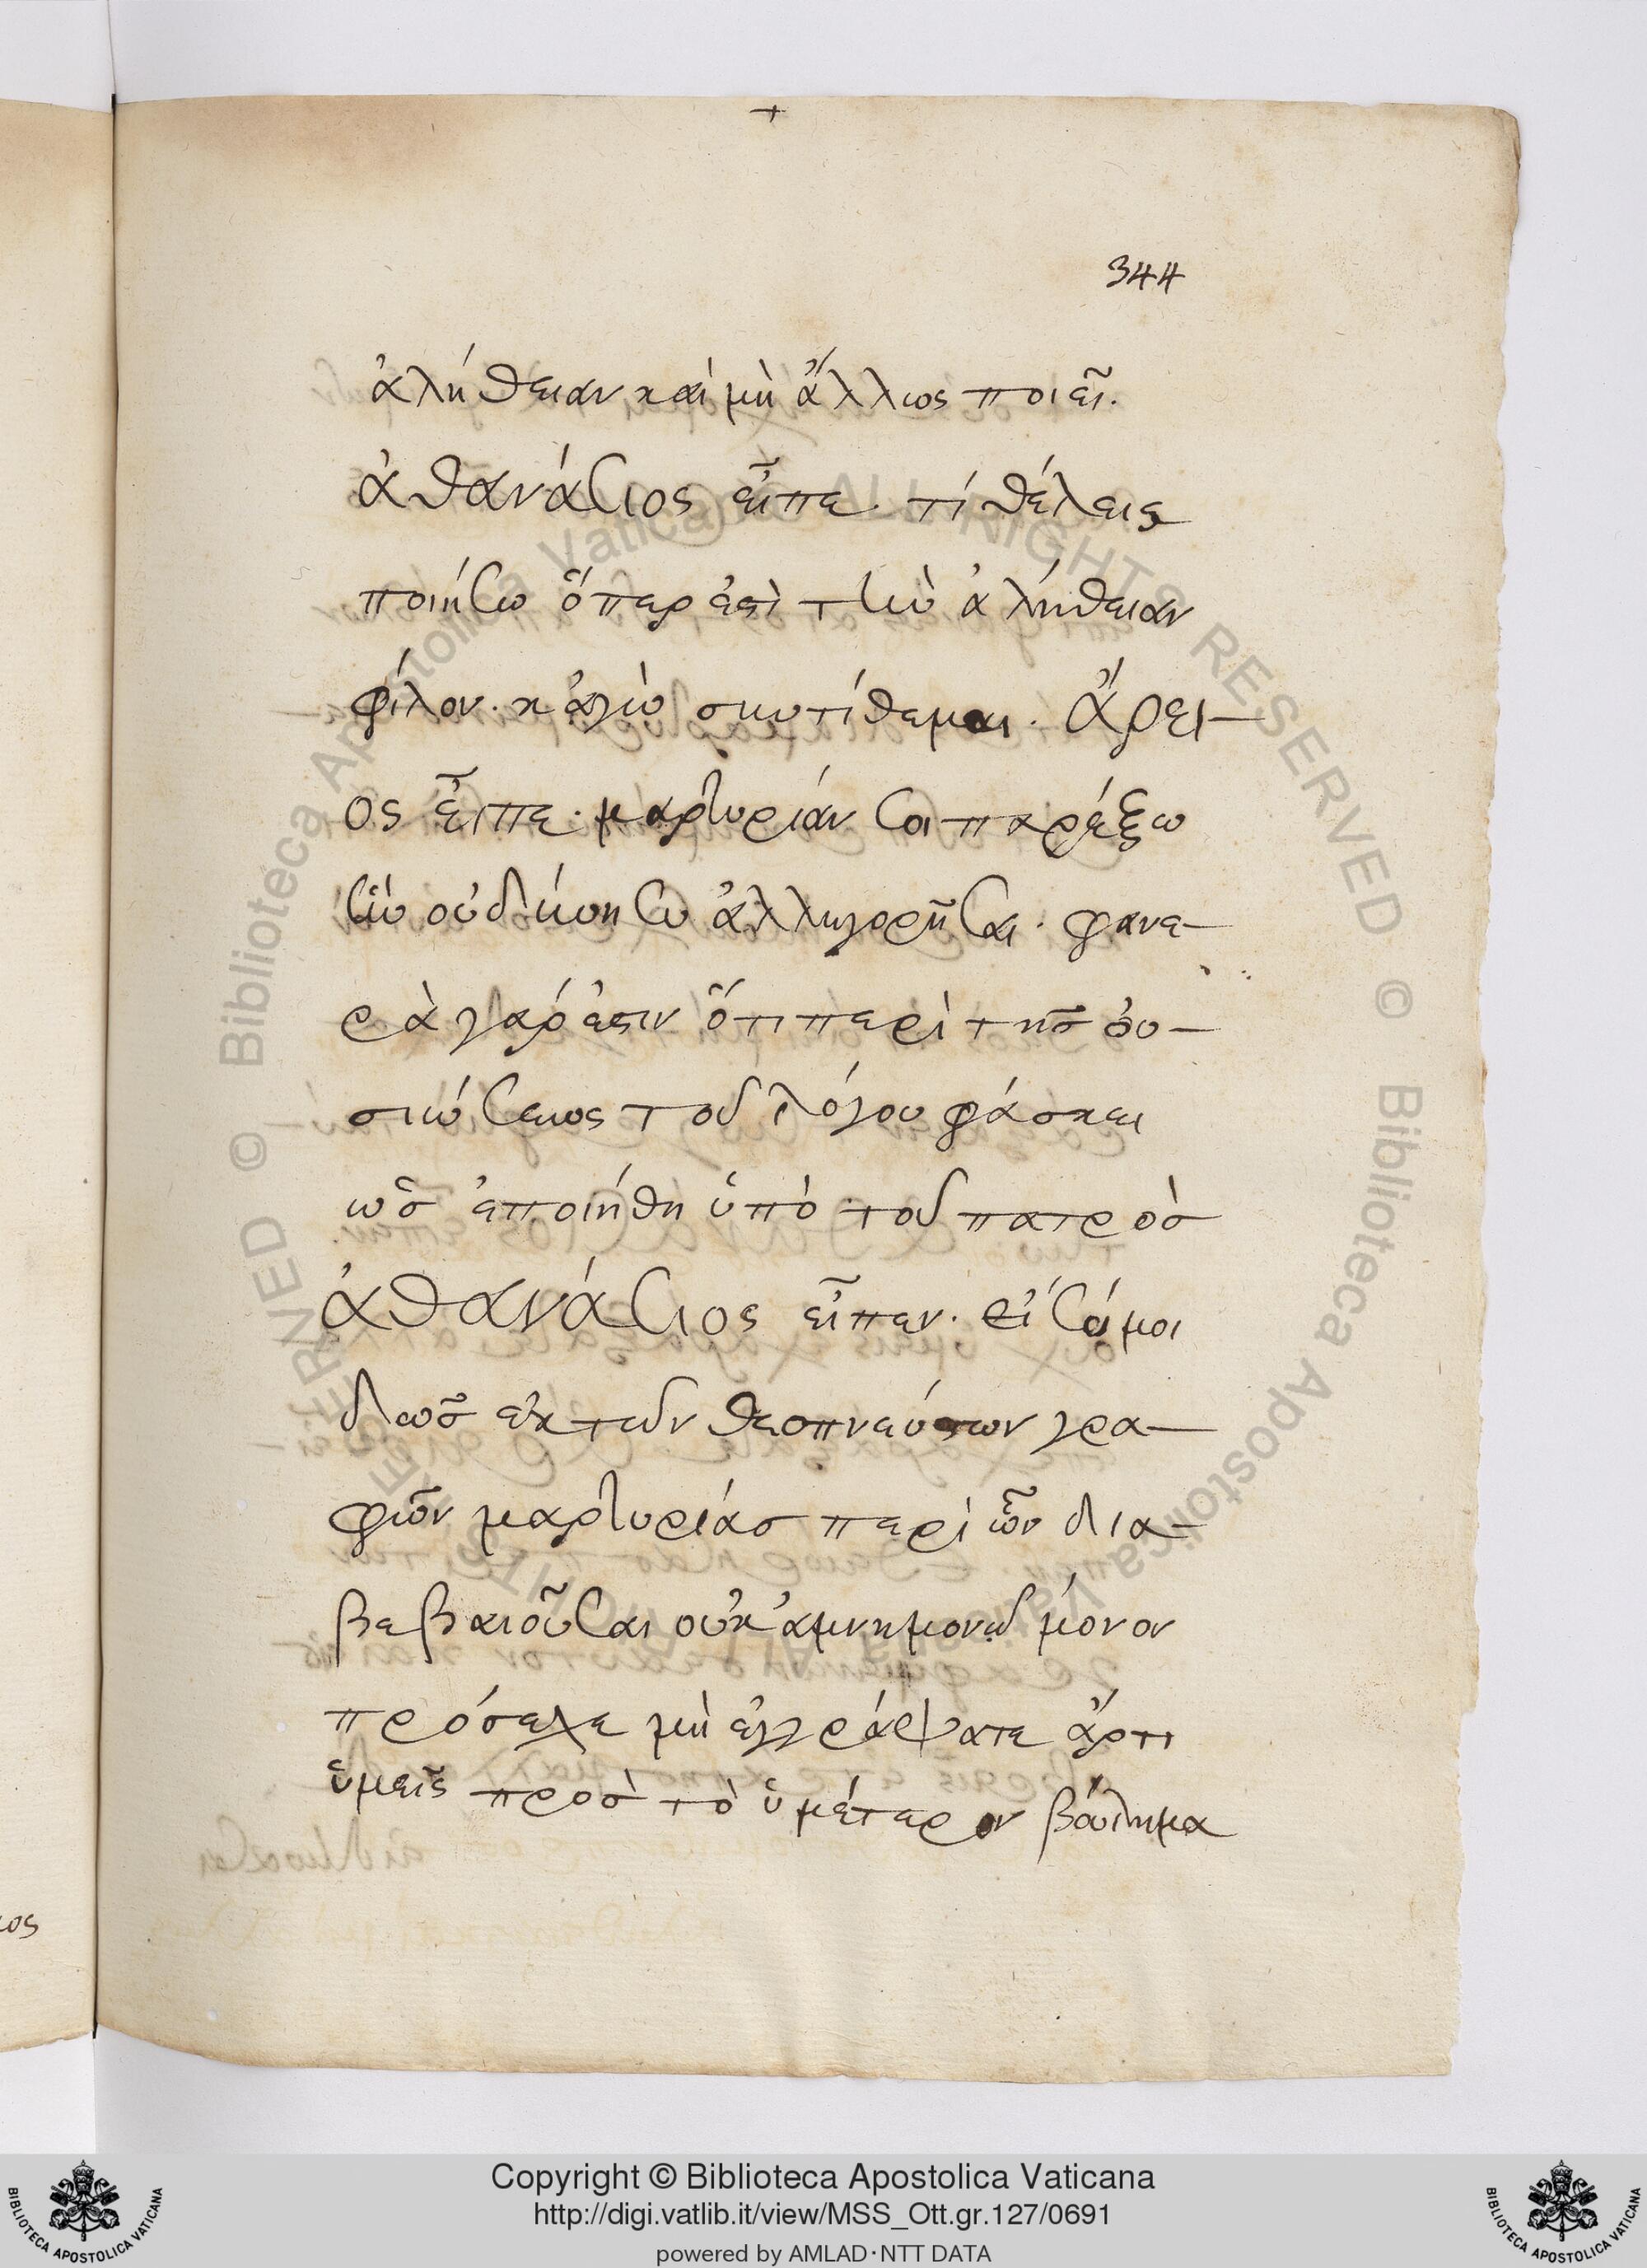 344
ἀλήθειαν καὶ μὴ ἄλλως ποιεῖ.
ἀθανάσιος εἶπε. τί θέλεις
ποιήσω ὅπερ ἐστὶ τὴν ἀλήθειαν
φίλον. κἀγὼ συντίθεμαι. ἄρει-
ος εἶπε. μαρτυρίαν σοι παρέξω
ἣν οὐ δύνῃ σὺ ἀλληγορῆσαι. φανε-
ρὰ γάρ ἐστιν ὅτι περὶ τῆς οὐ-
σιώσεως τοῦ λόγου φάσκει
ὡς ἐποιήθη ὑπὸ τοῦ πατρὸς
ἀθανάσιος εἶπεν. εἰ σύ μοι
δῷς ἐκ τῶν θεοπνεύστων γρα-
φῶν μαρτυρίας περὶ ὧν δια-
βεβαιοῦσαι οὐκ ἀμνημονῶ μόνον
πρόσεχε μὴ ἐγγράψατε ἄρτι
ὑμεῖς πρὸς τὸ ὑμέτερον βούλημα
Copyright © Biblioteca Apostolica Vaticana
http://digi.vatlib.it/view/MSS_Ott.gr.127/0691
powered by AMLAD·NTT DATA
BIBLIOTECA APOSTOLICA VATICANA
BIBLIOTECA APOSTOLICA VATICANA
© Biblioteca Apostolica Vaticana ALL RIGHTS RESERVED
© Biblioteca Apostolica Vaticana ALL RIGHTS RESERVED